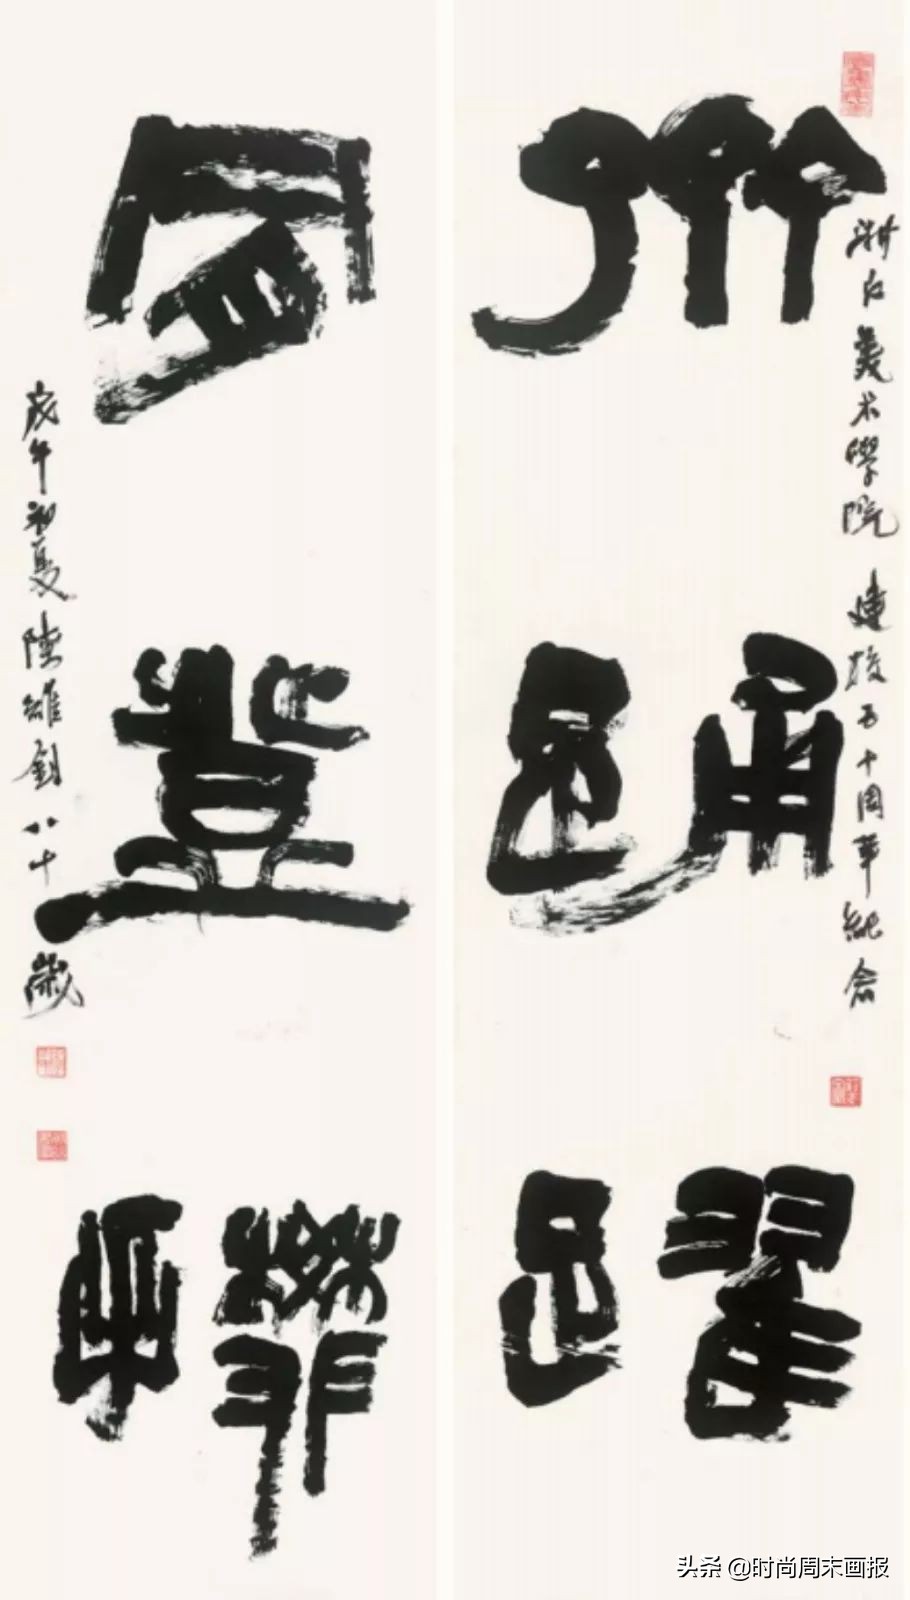 浙江美术學院 建校五十周年紀念
齊踊躍
登攀
戊午初夏陸維釗八十歲
头条 @时尚周末画报